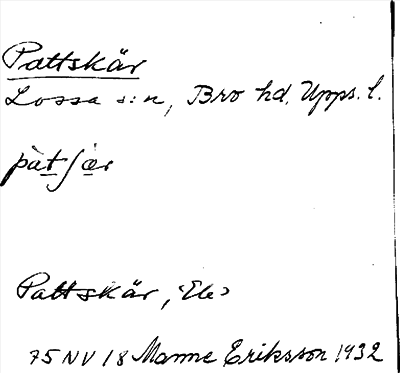 Pattskär
Lossa s:n, Bro hd. Upps. l.
pàt ʃær
Pattskär, Ek>
75 NV 18 Manne Eriksson 1932